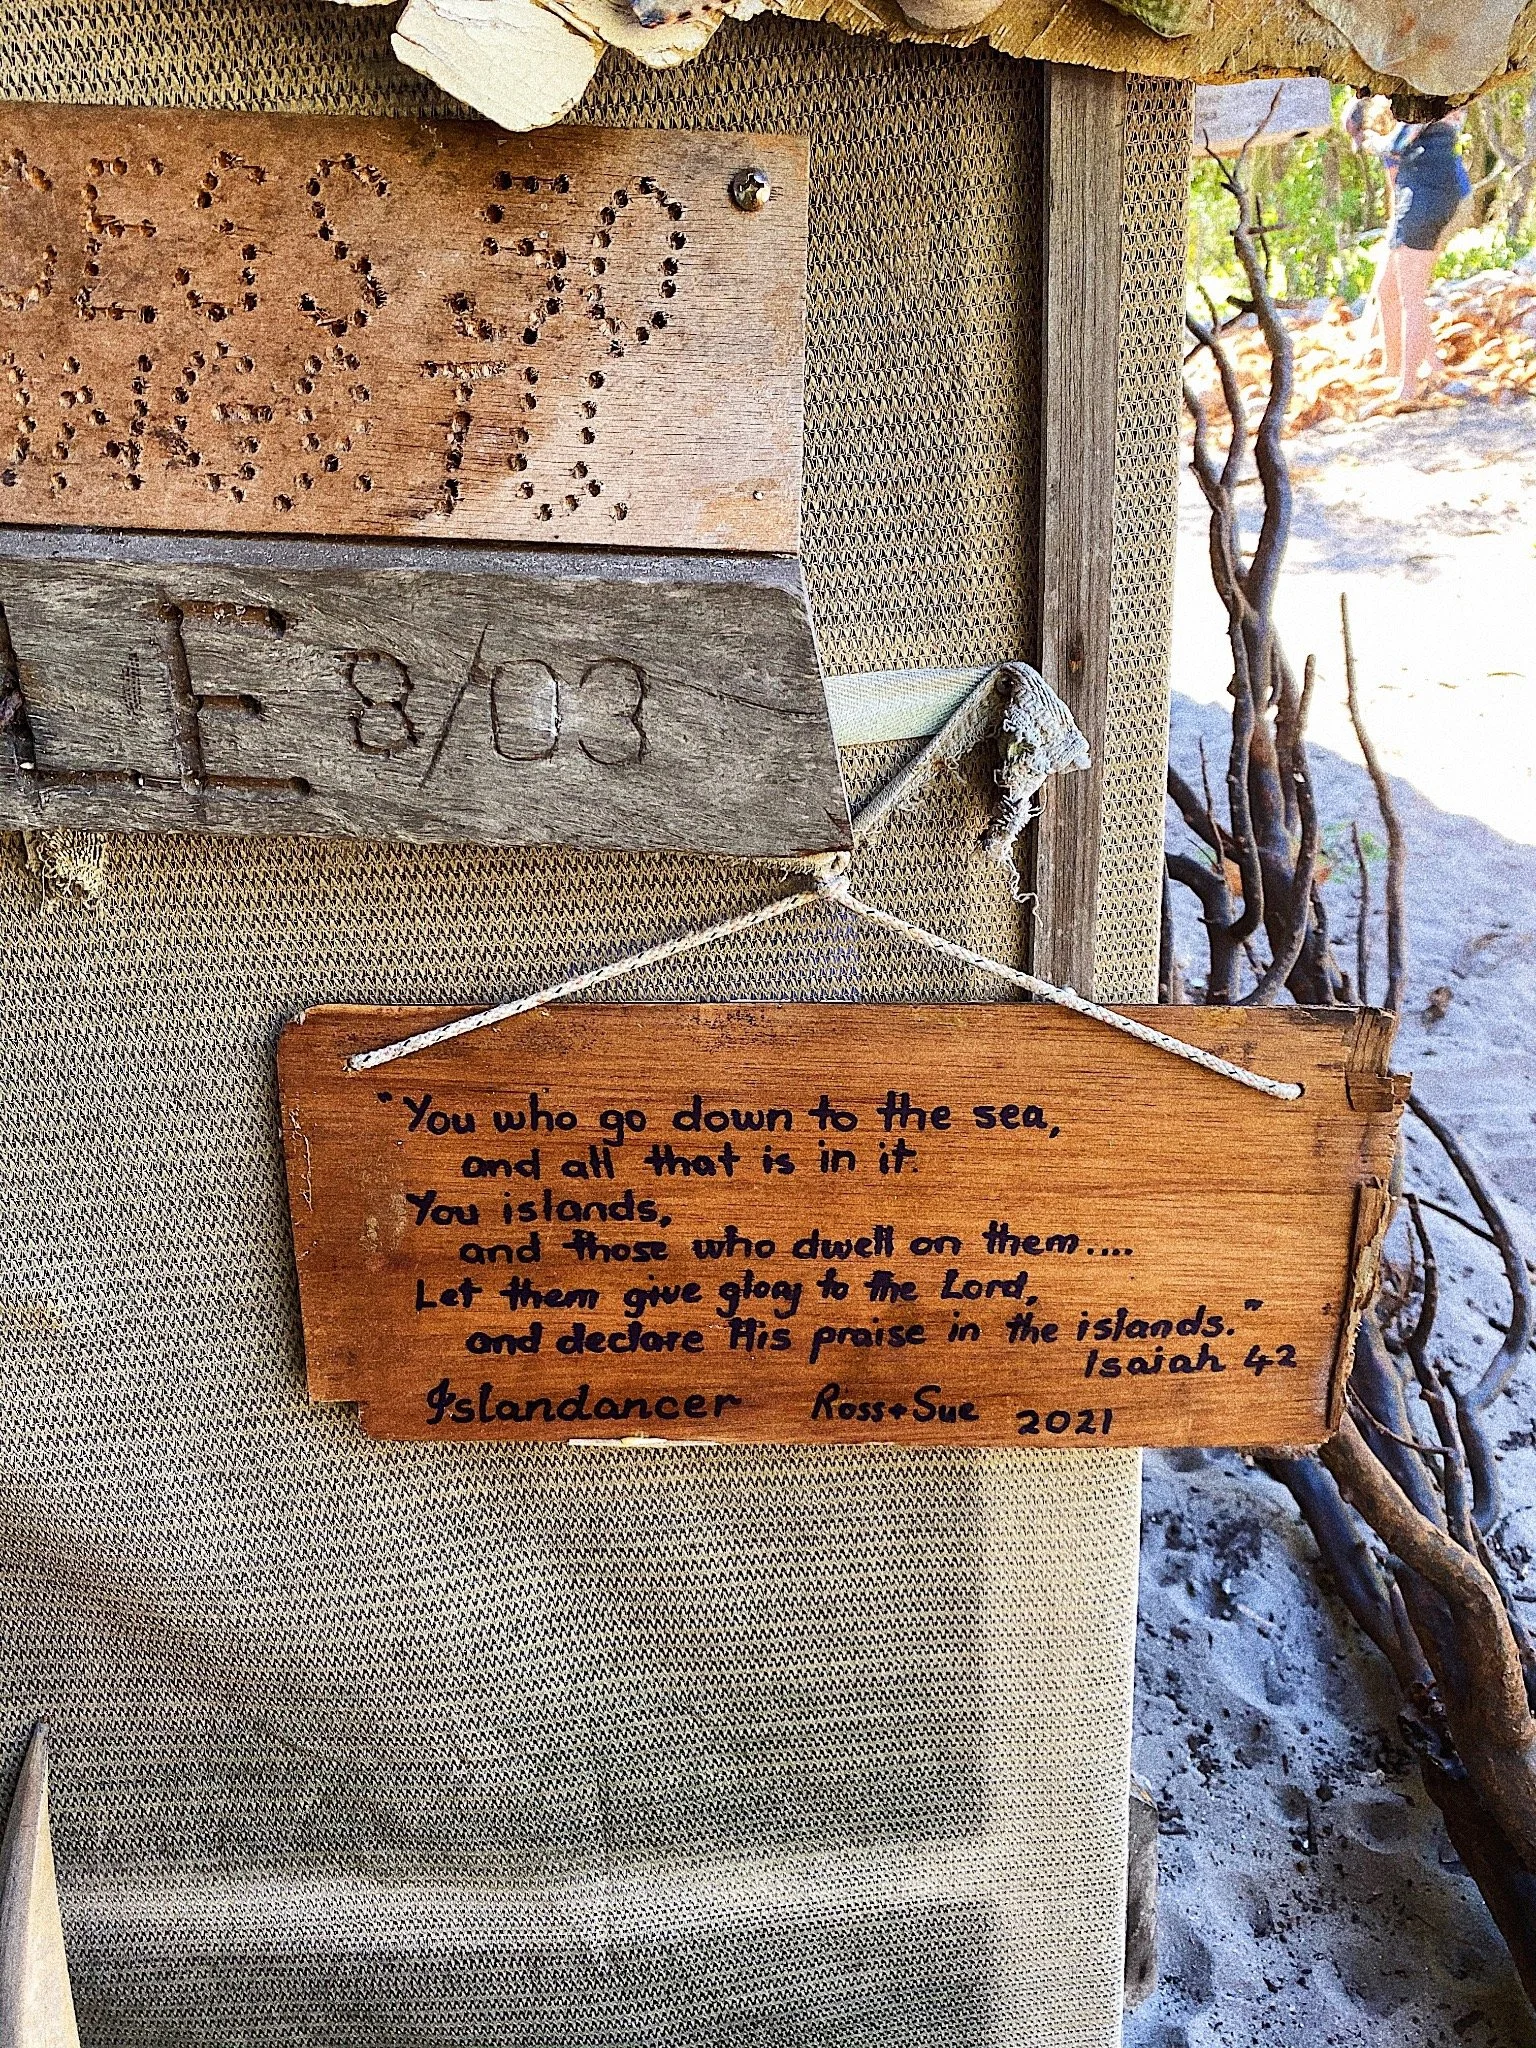 8/03
"You who go down to the sea,
and all that is in it.
You islands,
and those who dwell on them....
Let them give glory to the Lord,
and declare His praise in the islands."
Isaiah 42
Islandancer Ross + Sue 2021